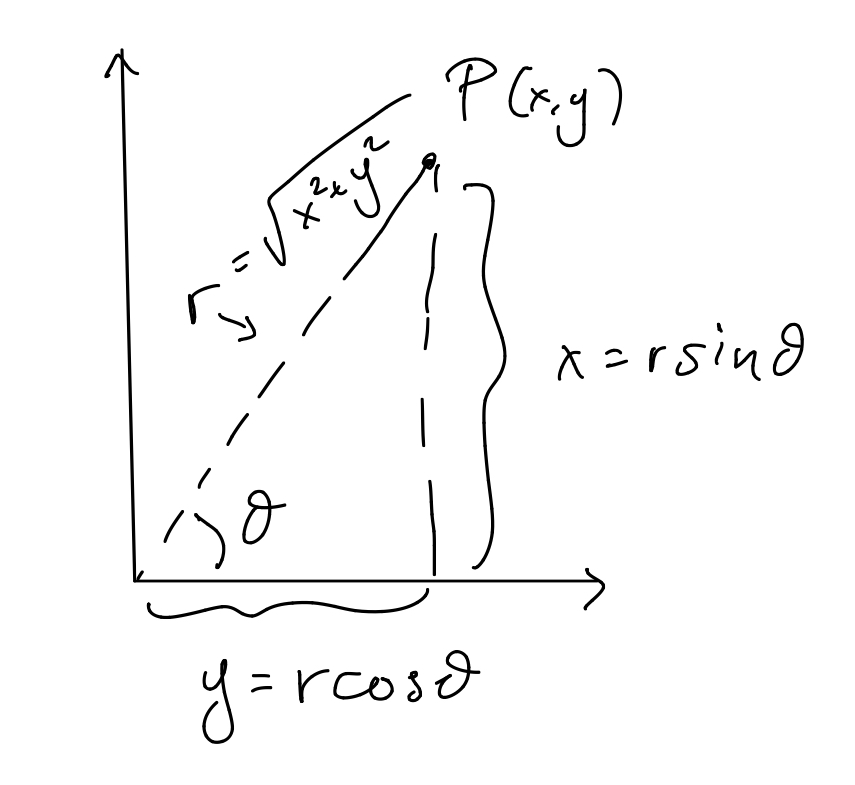 P(x,y)
r = √x²ˣy²
x = r sin θ
θ
y = r cos θ